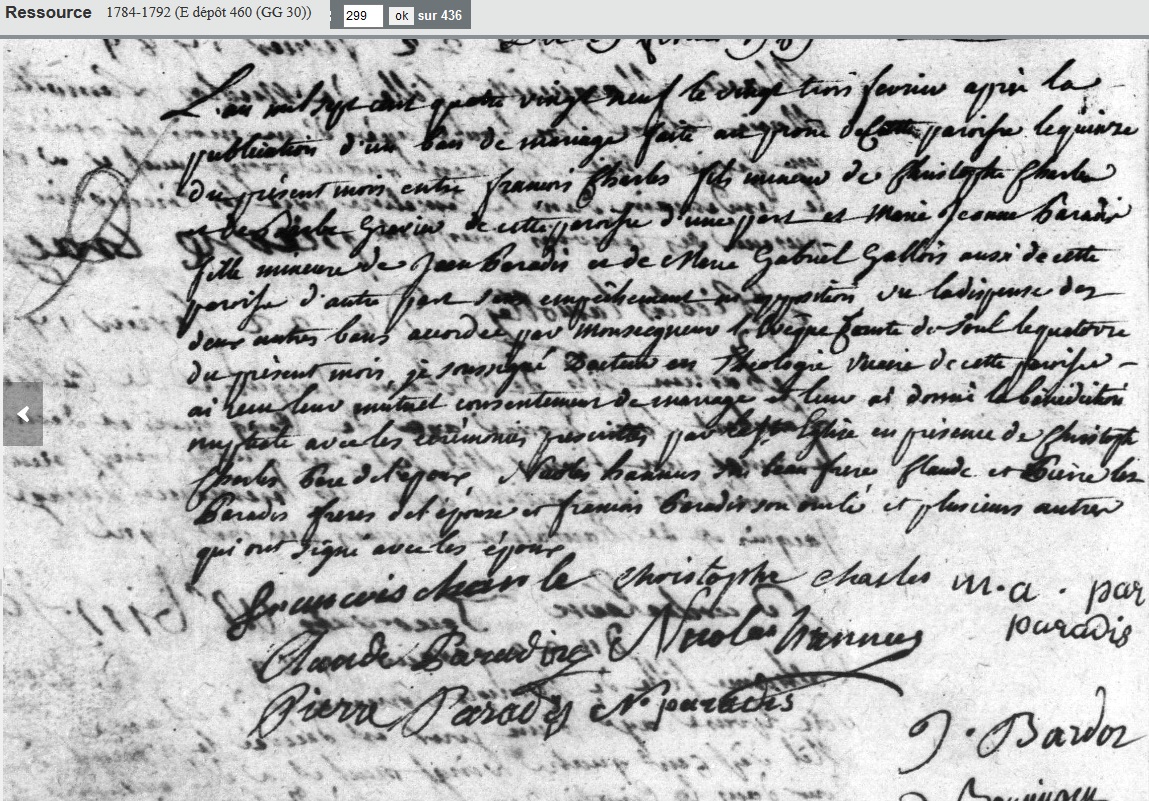 Ressource 1784-1792 (E dépôt 460 (GG 30)) 299 ok sur 436
L'an mil sept cent quatre vingt neuf le vingt trois fevrier après la
publication d'un ban de mariage faite au prone de cette paroisse le quinze
du présent mois entre francois Charles fils mineur de Christophe Charles
et de Barbe Gravier de cette paroisse d'une part et Marie Jeanne Paradis
fille mineure de Jean Paradis et de Marie Gabriel Gallois aussi de cette
paroisse d'autre part sans empêchement ni opposition vu la dispense des
deux autres bans accordée par Monseigneur l'Evêque Comte de Toul le quatorze
du présent mois, je soussigné Docteur en Théologie vicaire de cette paroisse
ai reçu leur mutuel consentement de mariage et leur ai donné la bénédiction
nuptiale avec les cérémonies prescrites par l'Eglise en présence de Christophe
Charles Pere de l'époux Nicolas hannus beau frere Claude et Pierre les
Paradis freres de l'épouse et francois Paradis son oncle et plusieurs autres
qui ont signé avec les époux
francois charle christophe charles m.a. par
paradis
Claude Paradis Nicolas hannus
Pierre Paradis N paradis
J. Bardot